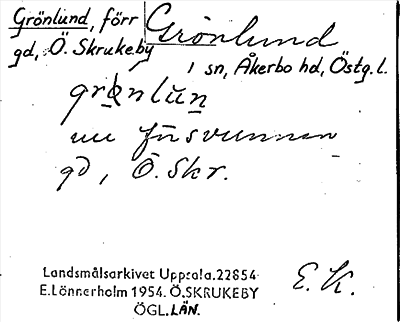 Grönlund, förr
gd, Ö. Skrukeby
Grönlund
i sn, Åkerbo hd, Östg. l.
grönlun
nu försvunnen
gd, Ö. Skr.
Landsmålsarkivet Uppsala. 22854
E. Lönnerholm 1954. Ö. SKRUKEBY
ÖGL. LÄN.
E. K.